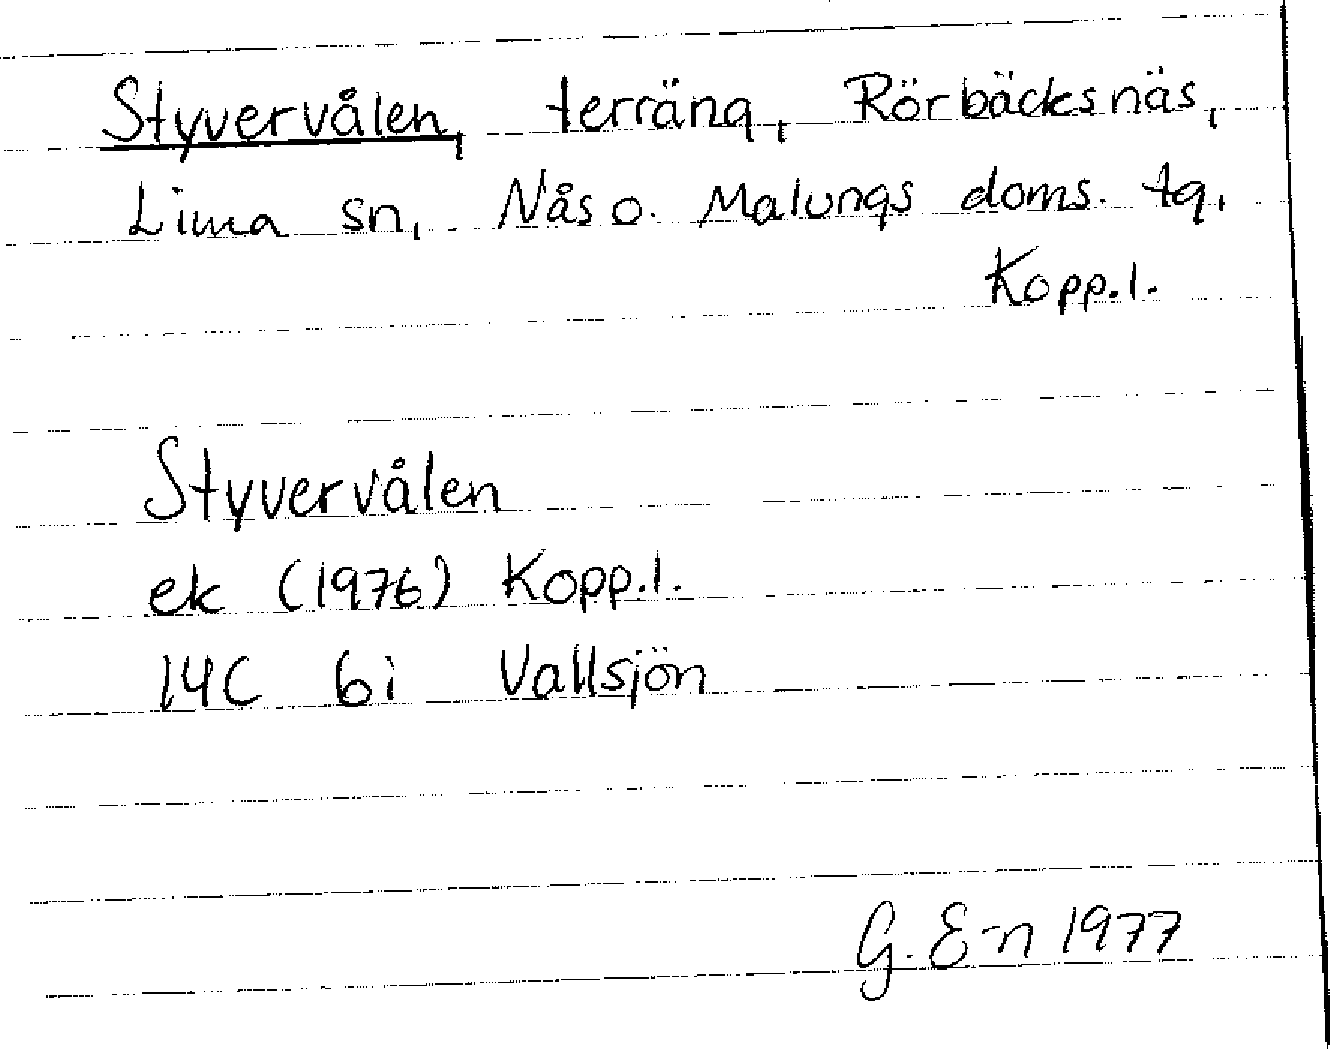 Styvervålen, terräng, Rörbäcksnäs,
Lima sn, Nås o. Malungs doms. tg,
Kopp.l.
Styvervålen
ek (1976) Kopp.l.
14C 6i Vallsjön
G. E-n 1977